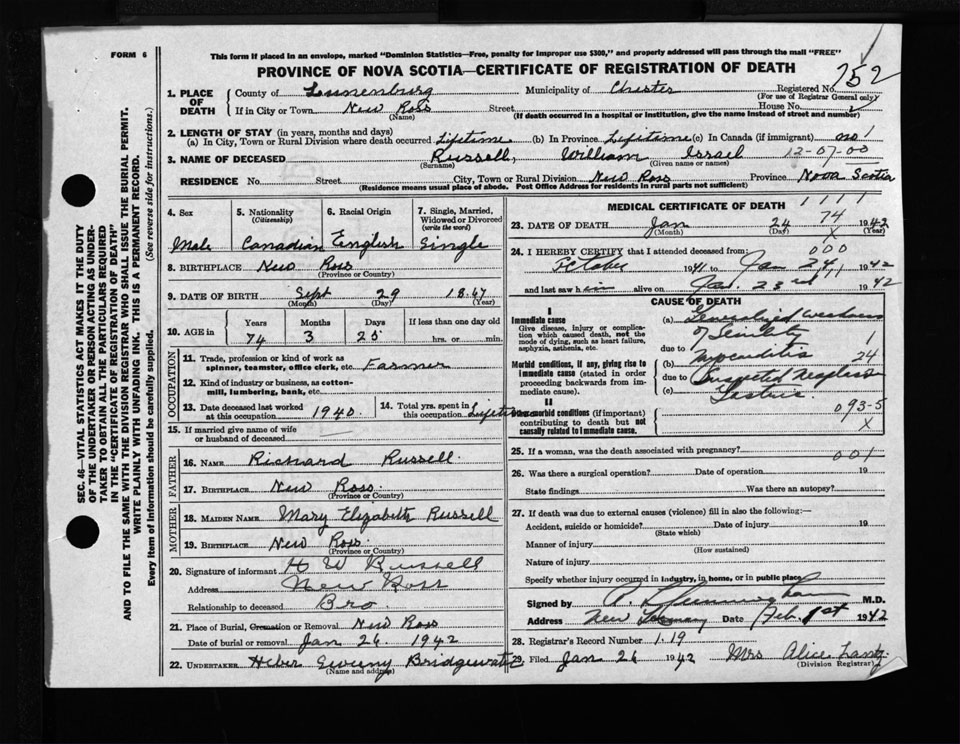 FORM 6
This form if placed in an envelope, marked "Dominion Statistics—Free, penalty for improper use $300," and properly addressed will pass through the mail "FREE"
PROVINCE OF NOVA SCOTIA—CERTIFICATE OF REGISTRATION OF DEATH
252
1. PLACE OF DEATH
County of Lunenburg Municipality of Chester Registered No.
(For use of Registrar General only)
If in City or Town New Ross Street House No.
(Name) (If death occurred in a hospital or institution, give the name instead of street and number)
2. LENGTH OF STAY (in years, months and days)
(a) In City, Town or Rural Division where death occurred Lifetime (b) In Province Lifetime (c) In Canada (if immigrant) no 1
3. NAME OF DECEASED Russell, William Israel 12-07-00
(Surname) (Given name or names)
RESIDENCE No. Street City, Town or Rural Division New Ross Province Nova Scotia
(Residence means usual place of abode. Post Office Address for residents in rural parts not sufficient)
4. Sex 5. Nationality (Citizenship) 6. Racial Origin 7. Single, Married, Widowed or Divorced (write the word)
Male Canadian English Single
8. BIRTHPLACE New Ross
(Province or Country)
9. DATE OF BIRTH Sept 29 1867
(Month) (Day) (Year)
10. AGE in Years Months Days If less than one day old
74 3 25 hrs. or min.
OCCUPATION
11. Trade, profession or kind of work as spinner, teamster, office clerk, etc. Farmer
12. Kind of industry or business, as cotton-mill, lumbering, bank, etc.
13. Date deceased last worked at this occupation 1940
14. Total yrs. spent in this occupation Lifetime
15. If married give name of wife or husband of deceased
FATHER
16. NAME Richard Russell
17. BIRTHPLACE New Ross
(Province or Country)
MOTHER
18. MAIDEN NAME Mary Elizabeth Russell
19. BIRTHPLACE New Ross
(Province or Country)
20. Signature of informant H W Russell
Address New Ross
Relationship to deceased Bro
21. Place of Burial, Cremation or Removal New Ross
Date of burial or removal Jan 26 1942
22. UNDERTAKER Heber Sweeny Bridgewater
(Name and address)
MEDICAL CERTIFICATE OF DEATH
1 1 1 1
74
23. DATE OF DEATH Jan 24 1942
(Month) (Day) (Year)
X
24. I HEREBY CERTIFY that I attended deceased from:
000
October 1941 to Jan 24, 1942
and last saw him alive on Jan. 23rd 1942
CAUSE OF DEATH
I
Immediate cause
Give disease, injury or complication which caused death, not the mode of dying, such as heart failure, asphyxia, asthenia, etc.
(a) Generalized weakness
of Senility 1
due to
Morbid conditions, if any, giving rise to immediate cause (stated in order proceeding backwards from immediate cause).
(b) Myocarditis 24
due to Suspected Neoplasm
(c) Gastric
II
Other morbid conditions (if important) contributing to death but not causally related to immediate cause.
093-5
X
25. If a woman, was the death associated with pregnancy? 001
26. Was there a surgical operation? Date of operation 19
State findings Was there an autopsy?
27. If death was due to external causes (violence) fill in also the following:—
Accident, suicide or homicide? Date of injury 19
(State which)
Manner of injury
(How sustained)
Nature of injury
Specify whether injury occurred in industry, in home, or in public place
Signed by M.D.
Address New Germany Date Feb. 1st 1942
28. Registrar's Record Number 1.19
29. Filed Jan 26 1942 Mrs Alice Lantz
(Division Registrar)
SEC. 46—VITAL STATISTICS ACT MAKES IT THE DUTY
OF THE UNDERTAKER OR PERSON ACTING AS UNDER-
TAKER TO OBTAIN ALL THE PARTICULARS REQUIRED
IN THE "CERTIFICATE OF REGISTRATION OF DEATH"
AND TO FILE THE SAME WITH THE DIVISION REGISTRAR WHO SHALL ISSUE THE BURIAL PERMIT.
WRITE PLAINLY WITH UNFADING INK. THIS IS A PERMANENT RECORD.
Every item of information should be carefully supplied. (See reverse side for instructions.)